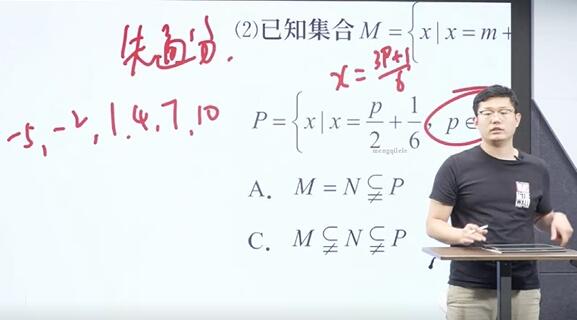 (2)已知集合 M = { x | x = m +
先通分.
x = 3P+1/6
-5, -2, 1, 4, 7, 10
P = { x | x = p/2 + 1/6, p ∈
mengqilele
A. M = N ⫋ P
C. M ⫋ N ⫋ P